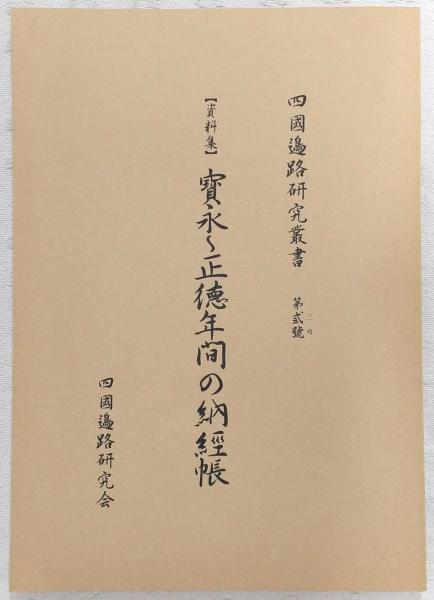 四國遍路研究叢書 第貳號
三号
【資料集】寳永〜正徳年間の納經帳
四國遍路研究会